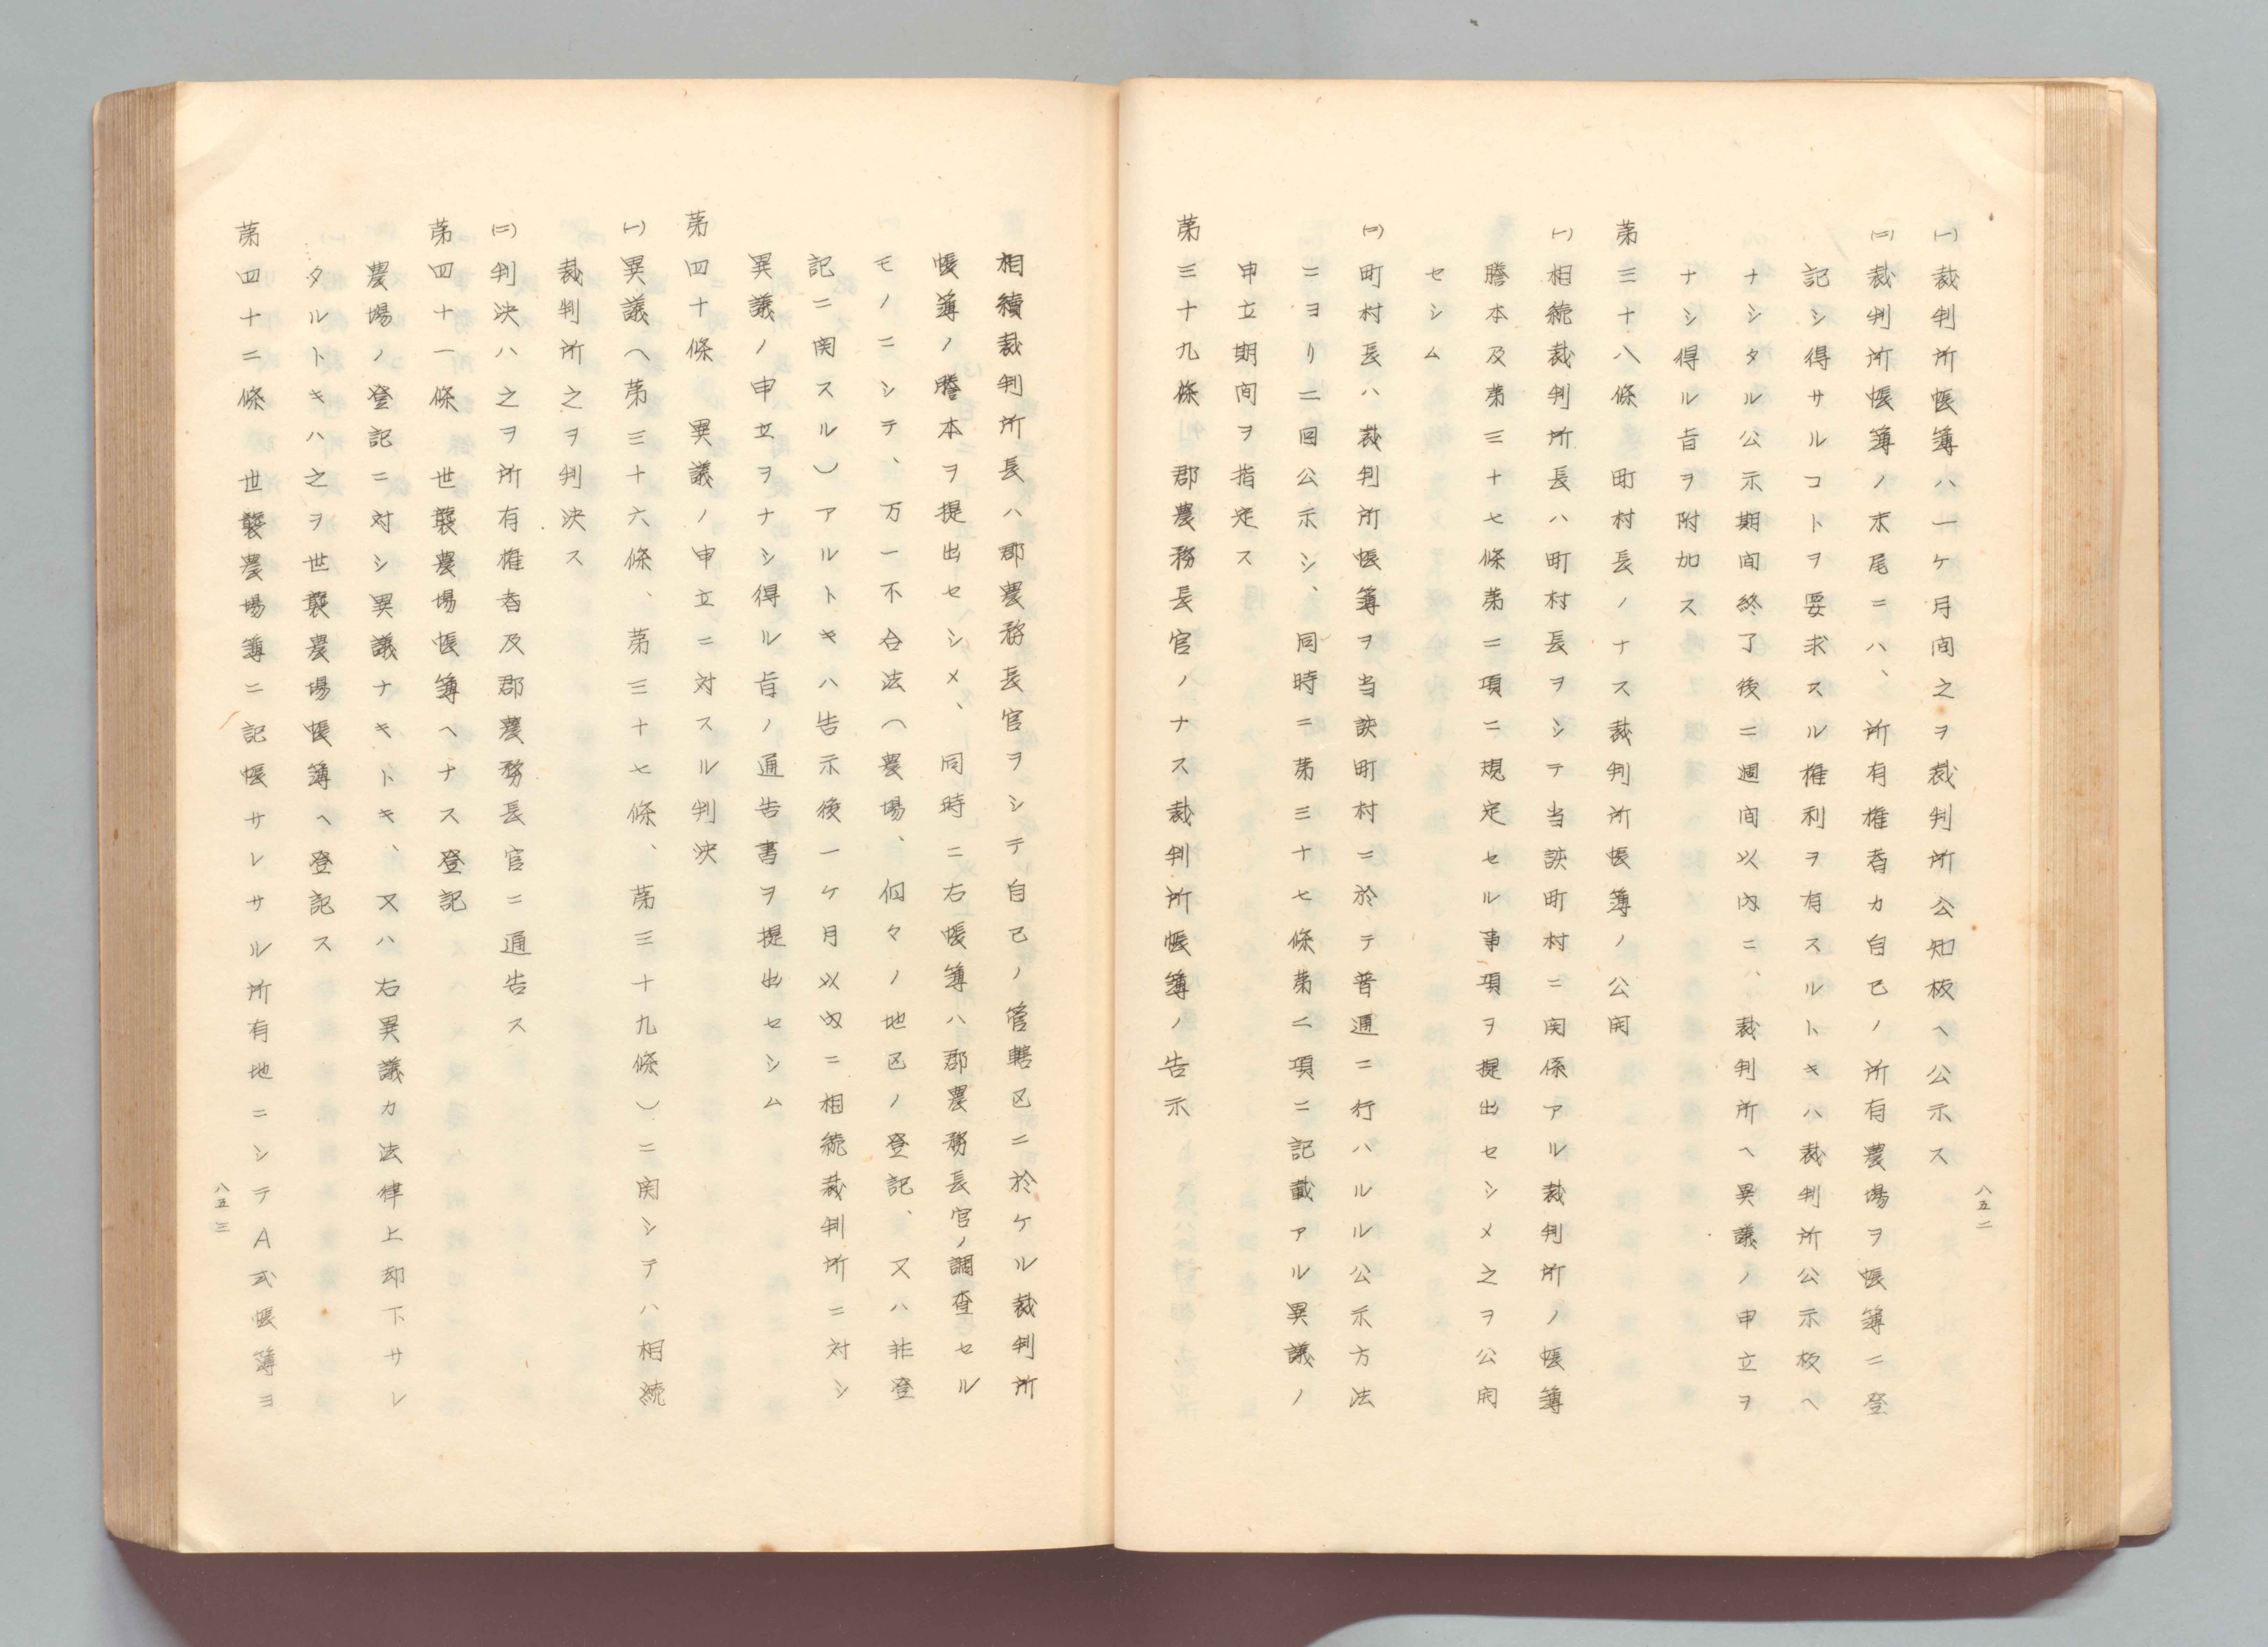 八五二
㈠裁判所帳簿ハ一ケ月間之ヲ裁判所公知板ヘ公示ス
㈡裁判所帳簿ノ末尾ニハ、所有権者カ自己ノ所有農場ヲ帳簿ニ登
記シ得サルコトヲ要求スル権利ヲ有スルトキハ裁判所公示板ヘ
ナシタル公示期間終了後二週間以内ニ、裁判所ヘ異議ノ申立ヲ
ナシ得ル旨ヲ附加ス
第三十八條　町村長ノナス裁判所帳簿ノ公開
㈠相続裁判所長ハ町村長ヲシテ当該町村ニ関係アル裁判所ノ帳簿
謄本及第三十七條第二項ニ規定セル事項ヲ提出セシメ之ヲ公開
セシム
㈡町村長ハ裁判所帳簿ヲ当該町村ニ於テ普通ニ行ハルル公示方法
ニヨリ二回公示シ、同時ニ第三十七條第二項ニ記載アル異議ノ
申立期間ヲ指定ス
第三十九條　郡農務長官ノナス裁判所帳簿ノ告示
相續裁判所長ハ郡農務長官ヲシテ自己ノ管轄区ニ於ケル裁判所
帳簿ノ謄本ヲ提出セシメ、同時ニ右帳簿ハ郡農務長官ノ調査セル
モノニシテ、万一不合法（農場、個々ノ地区ノ登記、又ハ非登
記ニ関スル）アルトキハ告示後一ケ月以内ニ相続裁判所ニ対シ
異議ノ申立ヲナシ得ル旨ノ通告書ヲ提出セシム
第四十條　異議ノ申立ニ対スル判決
㈠異議（第三十六條、第三十七條、第三十九條）ニ関シテハ相続
裁判所之ヲ判決ス
㈡判決ハ之ヲ所有権者及郡農務長官ニ通告ス
第四十一條　世襲農場帳簿ヘナス登記
農場ノ登記ニ対シ異議ナキトキ、又ハ右異議カ法律上却下サレ
タルトキハ之ヲ世襲農場帳簿ヘ登記ス
第四十二條　世襲農場簿ニ記帳サレサル所有地ニシテA式帳簿ヨ
八五三